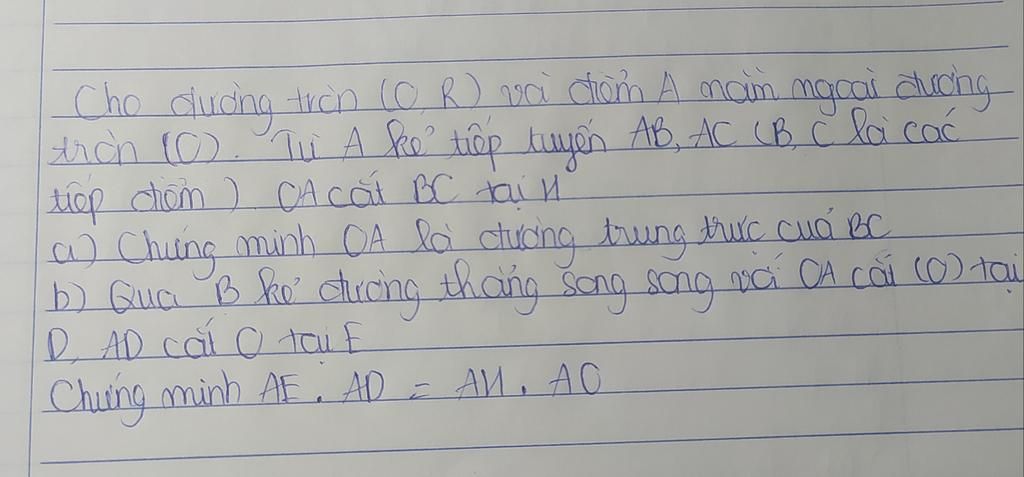 Cho đường tròn (O, R) với điểm A nằm ngoài đường
tròn (O). Từ A kẻ tiếp tuyến AB, AC (B, C là các
tiếp điểm) OA cắt BC tại H
a) Chứng minh OA là đường trung trực của BC
b) Qua B kẻ đường thẳng song song với OA cắt (O) tại
D, AD cắt O tại E
Chứng minh AE . AD = AH . AO